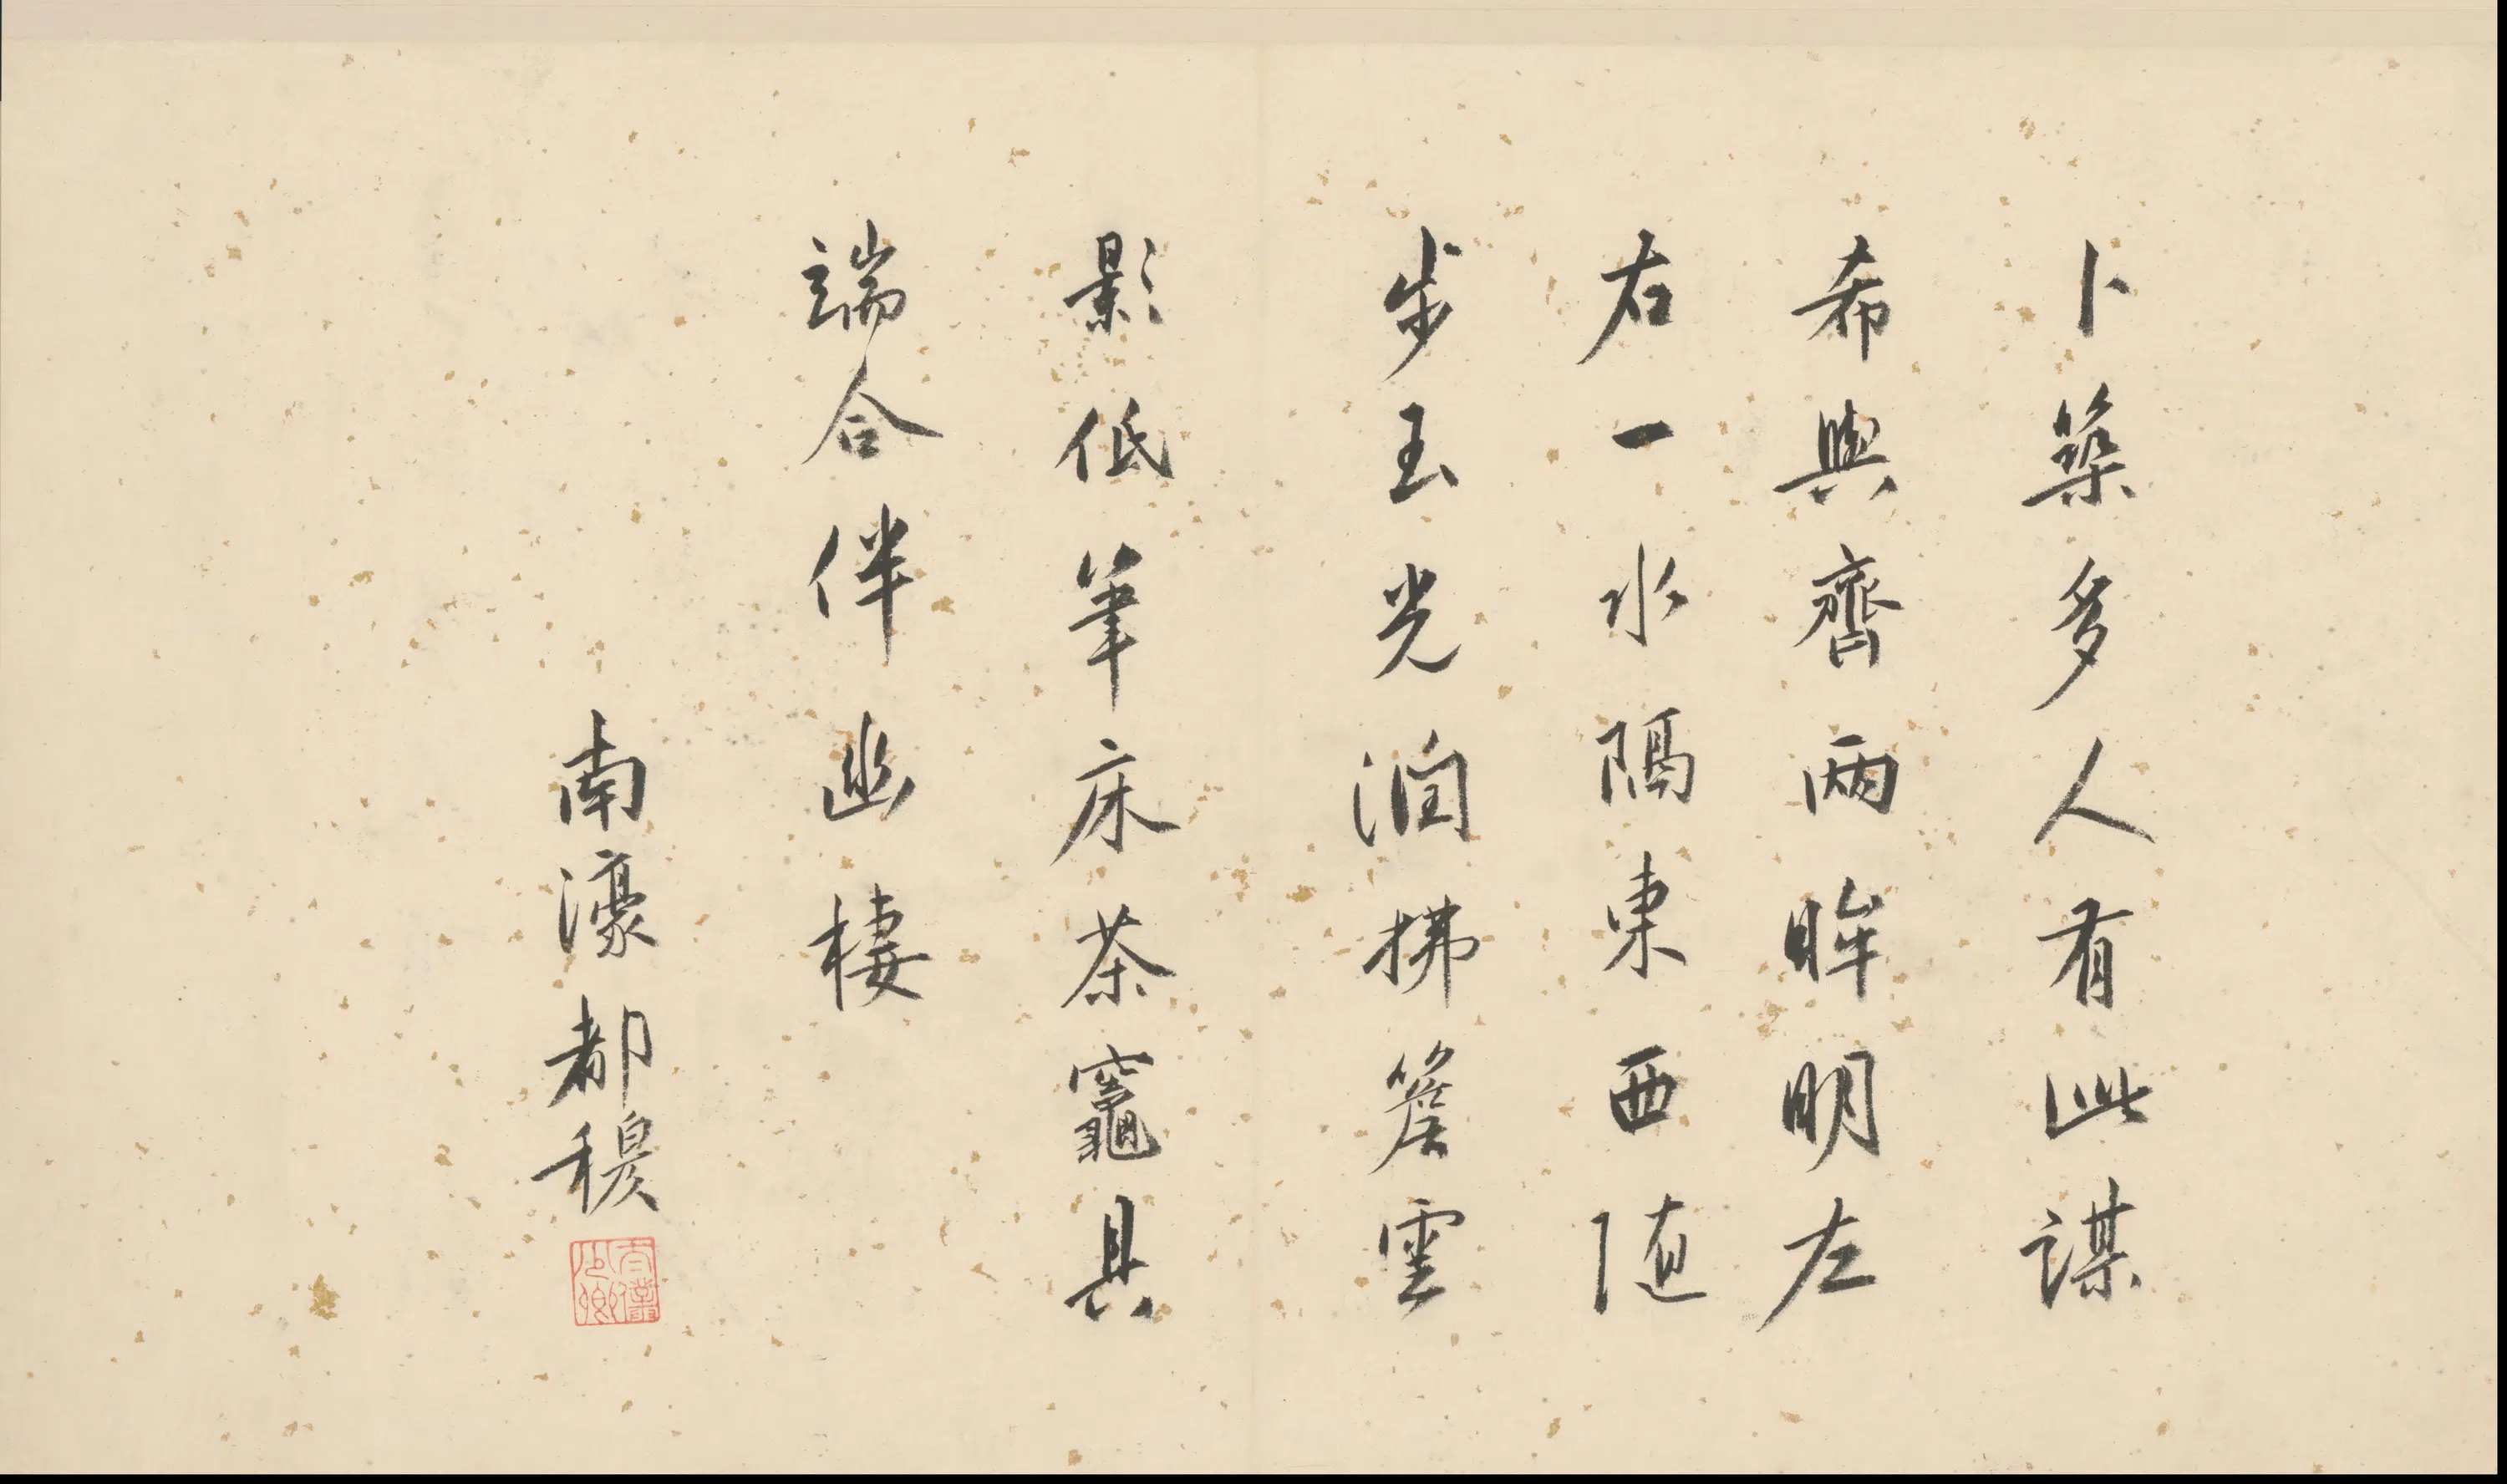 卜築多人有此謀
希與齊兩眸明左
右一水隔東西随
步玉光润拂簷雲
影低筆床茶竈具
端合伴幽棲
南濠都穆